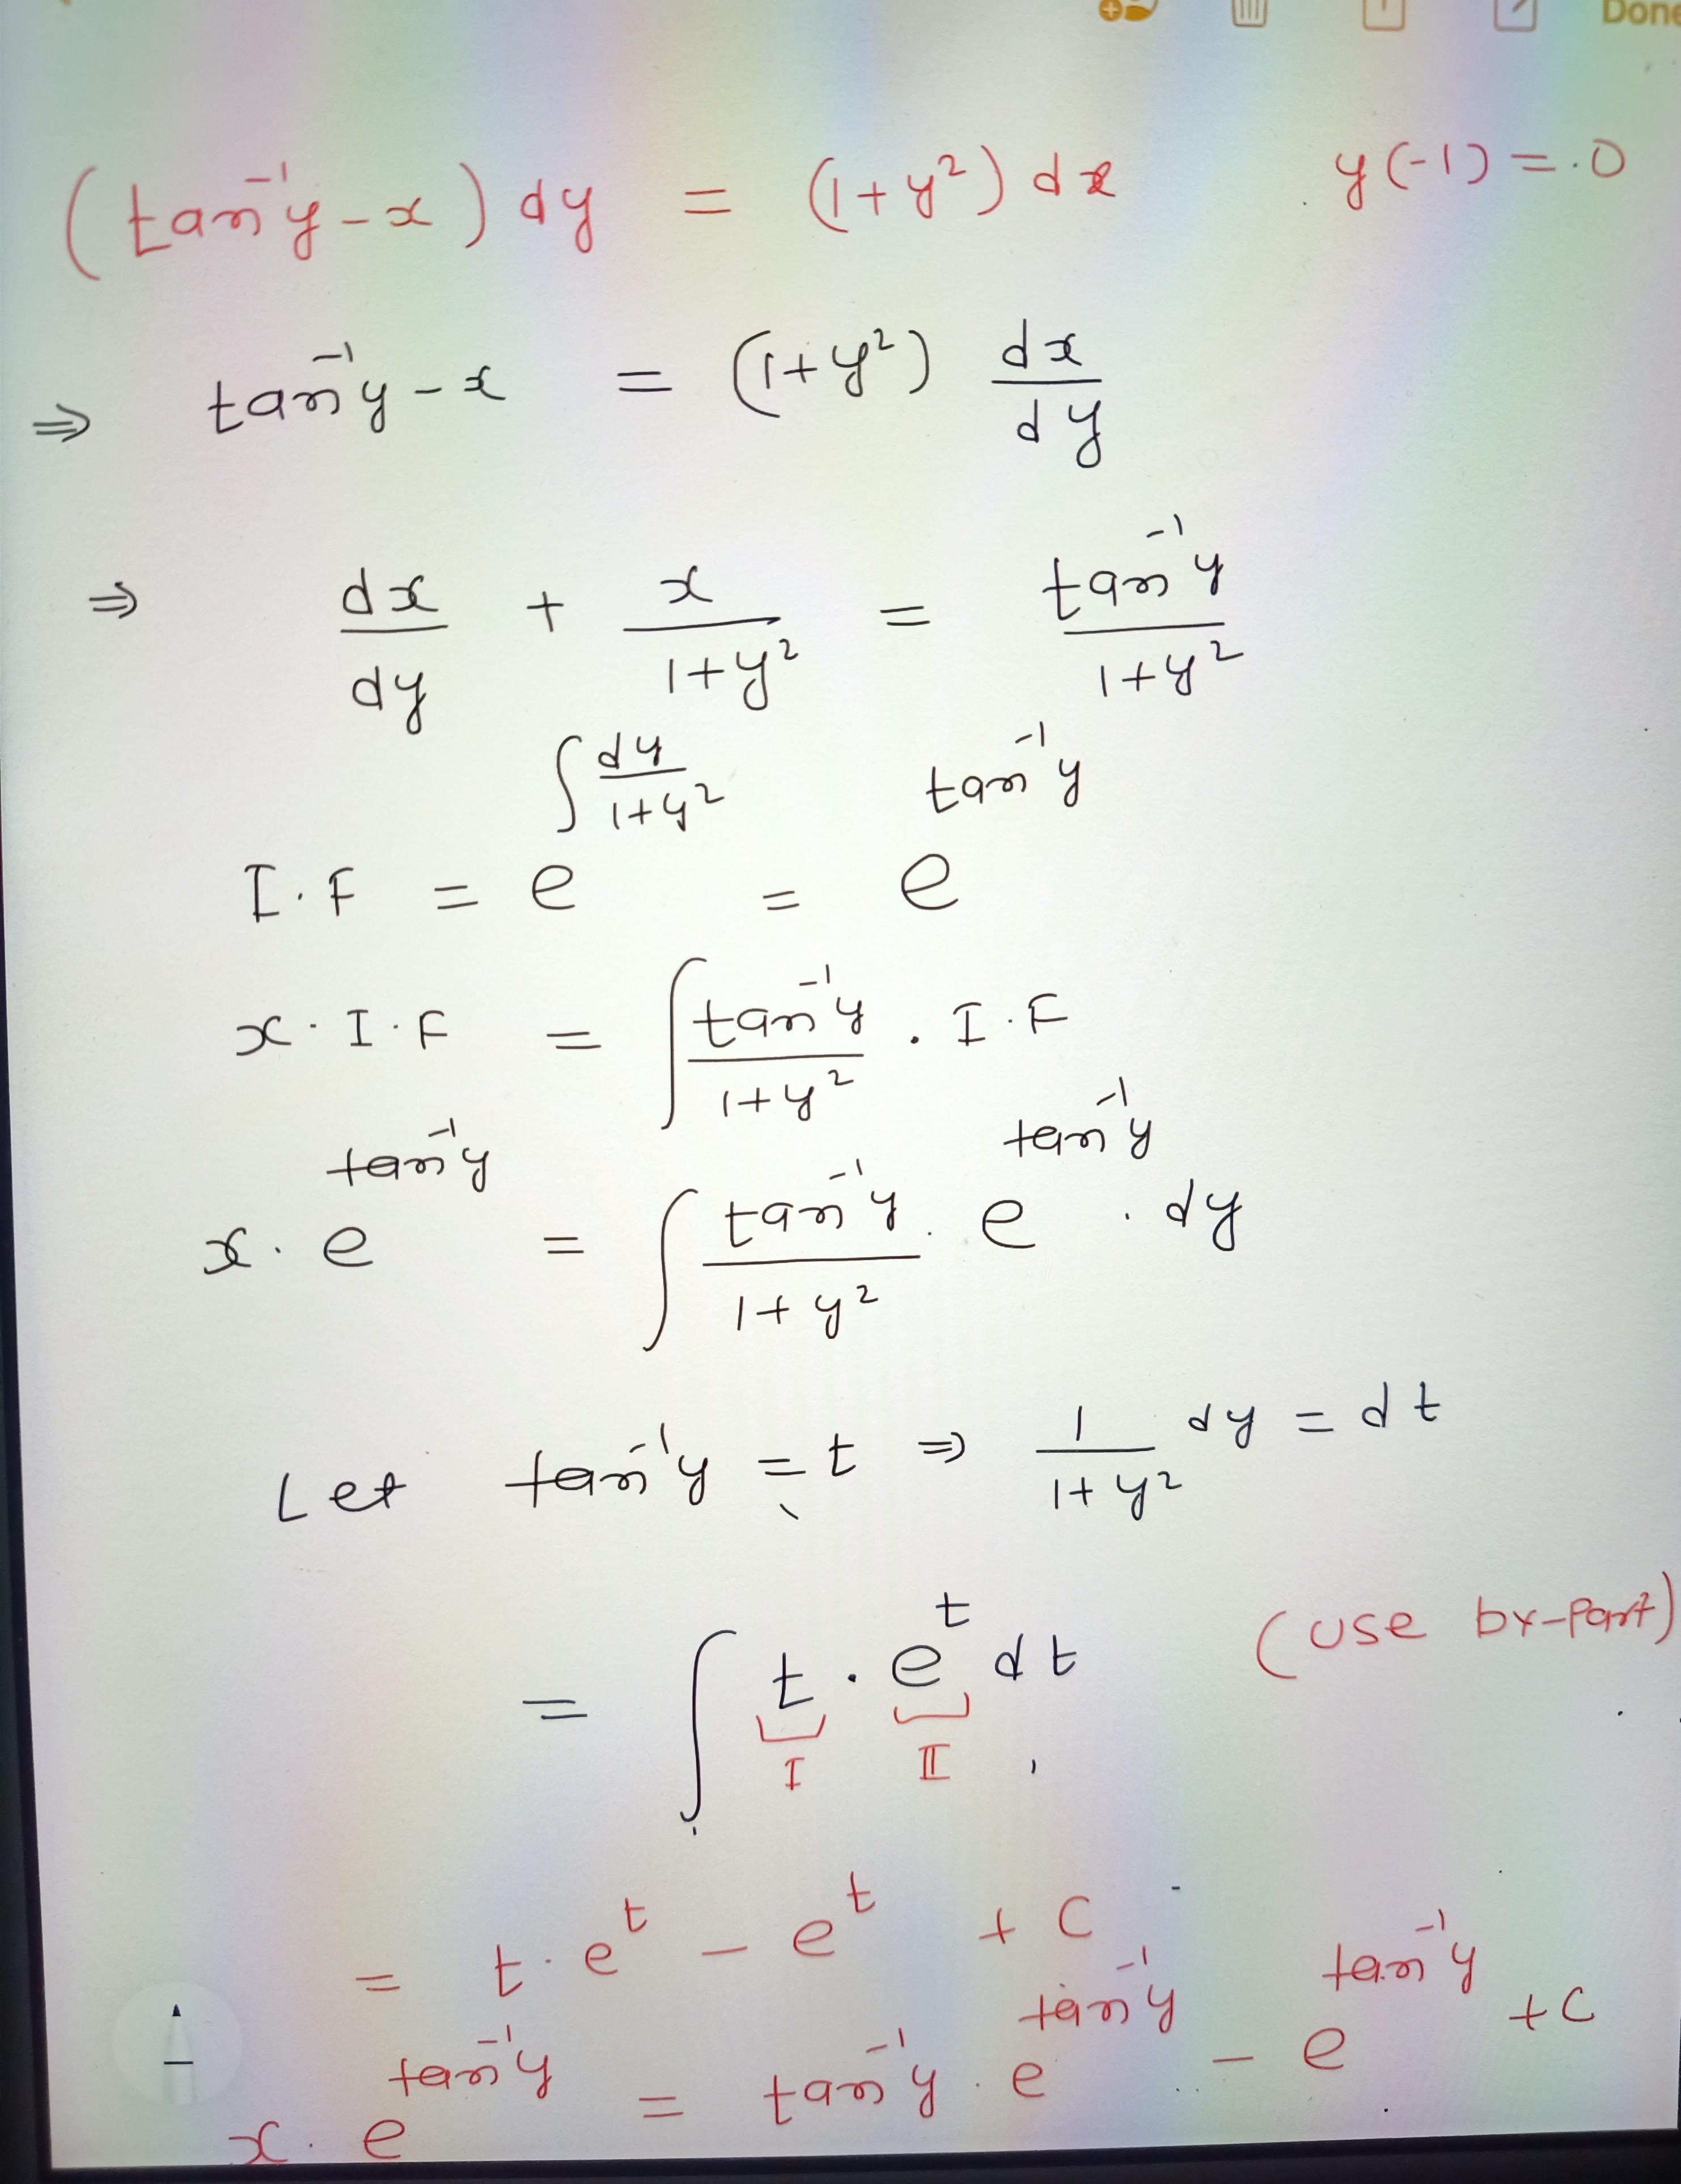 Done
(tan⁻¹y - x) dy = (1+y²) dx y(-1) = 0
⇒ tan⁻¹y - x = (1+y²) dx/dy
⇒ dx/dy + x/(1+y²) = tan⁻¹y/(1+y²)
I.F = e^(∫ dy/(1+y²)) = e^(tan⁻¹y)
x · I.F = ∫ tan⁻¹y/(1+y²) . I.F
x . e^(tan⁻¹y) = ∫ tan⁻¹y/(1+y²) . e^(tan⁻¹y) . dy
Let tan⁻¹y = t ⇒ 1/(1+y²) dy = dt
= ∫ t . e^t dt (use by-Part)
I II
= t . e^t - e^t + C
x . e^(tan⁻¹y) = tan⁻¹y . e^(tan⁻¹y) - e^(tan⁻¹y) + C